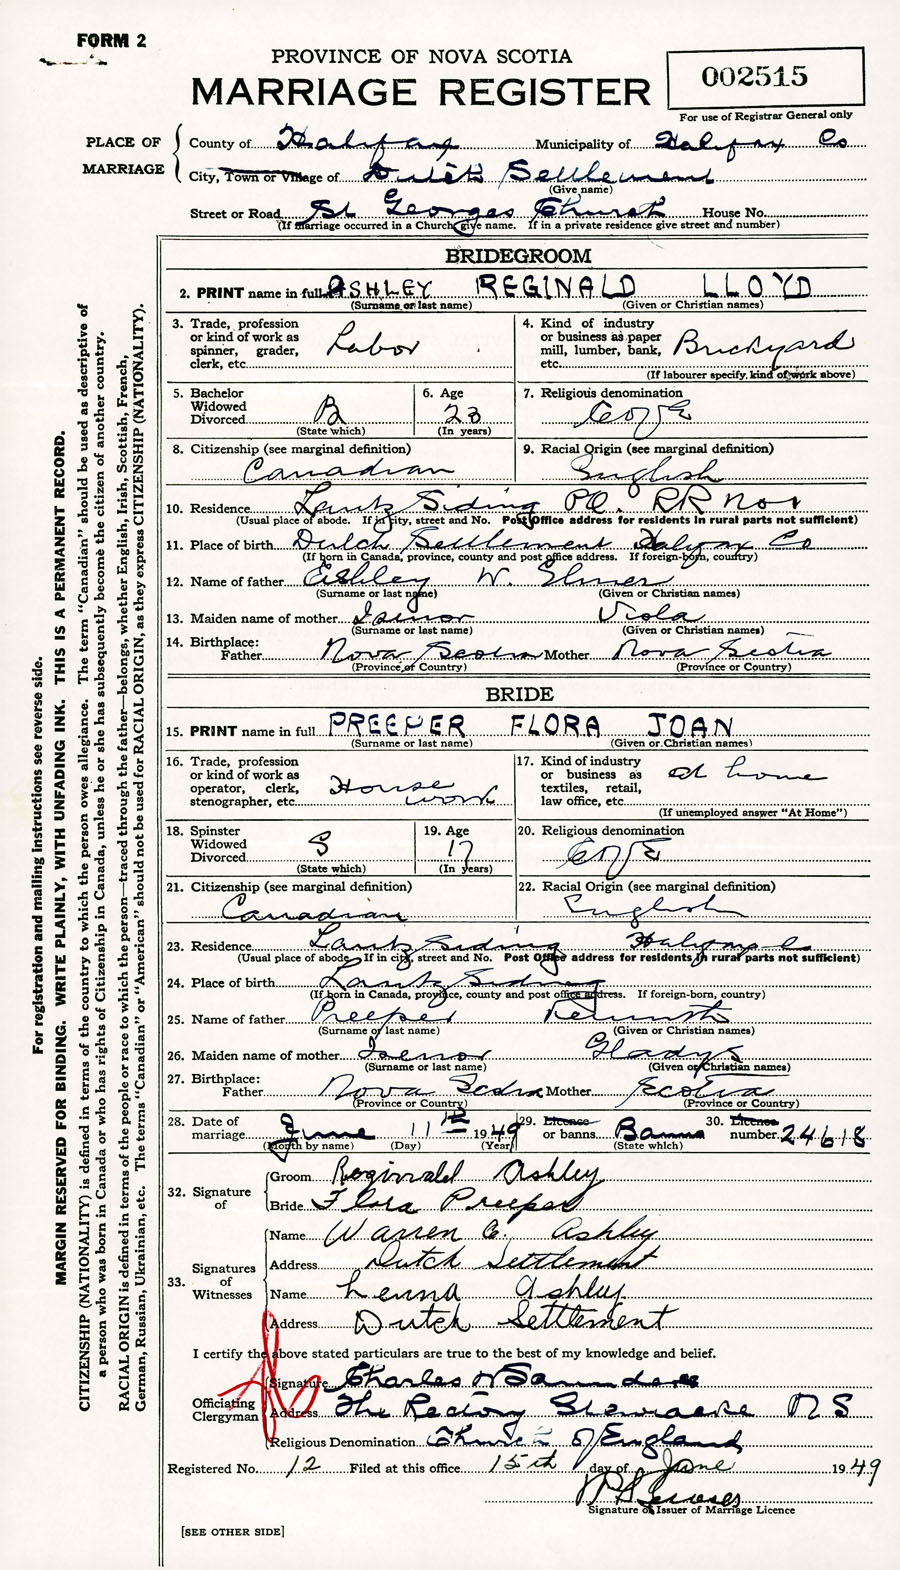 FORM 2
PROVINCE OF NOVA SCOTIA
MARRIAGE REGISTER
002515
For use of Registrar General only
PLACE OF MARRIAGE
County of Halifax Municipality of Halifax Co
City, Town or Village of Dutch Settlement
(Give name)
Street or Road St Georges Church House No.
(If marriage occurred in a Church give name. If in a private residence give street and number)
BRIDEGROOM
2. PRINT name in full ASHLEY REGINALD LLOYD
(Surname or last name) (Given or Christian names)
3. Trade, profession or kind of work as spinner, grader, clerk, etc. Labor
4. Kind of industry or business as paper mill, lumber, bank, etc. Brickyard
(If labourer specify kind of work above)
5. Bachelor Widowed Divorced B
(State which)
6. Age 23
(In years)
7. Religious denomination C of E
8. Citizenship (see marginal definition)
Canadian
9. Racial Origin (see marginal definition)
English
10. Residence Lantz Siding P.O. RR No 1
(Usual place of abode. If in city, street and No. Post Office address for residents in rural parts not sufficient)
11. Place of birth Dutch Settlement Halifax Co
(If born in Canada, province, county and post office address. If foreign-born, country)
12. Name of father Ashley W. Elmer
(Surname or last name) (Given or Christian names)
13. Maiden name of mother Isenor Viola
(Surname or last name) (Given or Christian names)
14. Birthplace:
Father Nova Scotia Mother Nova Scotia
(Province or Country) (Province or Country)
BRIDE
15. PRINT name in full PREEPER FLORA JOAN
(Surname or last name) (Given or Christian names)
16. Trade, profession or kind of work as operator, clerk, stenographer, etc. House work
17. Kind of industry or business as textiles, retail, law office, etc. at home
(If unemployed answer "At Home")
18. Spinster Widowed Divorced S
(State which)
19. Age 17
(In years)
20. Religious denomination C of E
21. Citizenship (see marginal definition)
Canadian
22. Racial Origin (see marginal definition)
English
23. Residence Lantz Siding Halifax Co
(Usual place of abode. If in city, street and No. Post Office address for residents in rural parts not sufficient)
24. Place of birth Lantz Siding
(If born in Canada, province, county and post office address. If foreign-born, country)
25. Name of father Preeper Kenneth
(Surname or last name) (Given or Christian names)
26. Maiden name of mother Isenor Gladys
(Surname or last name) (Given or Christian names)
27. Birthplace:
Father Nova Scotia Mother Scotia
(Province or Country) (Province or Country)
28. Date of marriage June 11th 1949 29. Licence or banns Banns 30. Licence number 24618
(Month by name) (Day) (Year) (State which)
32. Signature of
Groom Reginald Ashley
Bride Flora Preeper
33. Signatures of Witnesses
Name Warren E. Ashley
Address Dutch Settlement
Name Lenna Ashley
Address Dutch Settlement
I certify the above stated particulars are true to the best of my knowledge and belief.
Officiating Clergyman
Signature Charles H Saunders
Address The Rectory Stewiacke N S
Religious Denomination Church of England
Registered No. 12 Filed at this office 15th day of June 1949
Signature of Issuer of Marriage Licence
[SEE OTHER SIDE]
For registration and mailing instructions see reverse side.
MARGIN RESERVED FOR BINDING. WRITE PLAINLY, WITH UNFADING INK. THIS IS A PERMANENT RECORD.
CITIZENSHIP (NATIONALITY) is defined in terms of the country to which the person owes allegiance. The term "Canadian" should be used as descriptive of
a person who was born in Canada or who has rights of Citizenship in Canada, unless he or she has subsequently become the citizen of another country.
RACIAL ORIGIN is defined in terms of the people or race to which the person—traced through the father—belongs, whether English, Irish, Scottish, French,
German, Russian, Ukrainian, etc. The terms "Canadian" or "American" should not be used for RACIAL ORIGIN, as they express CITIZENSHIP (NATIONALITY).